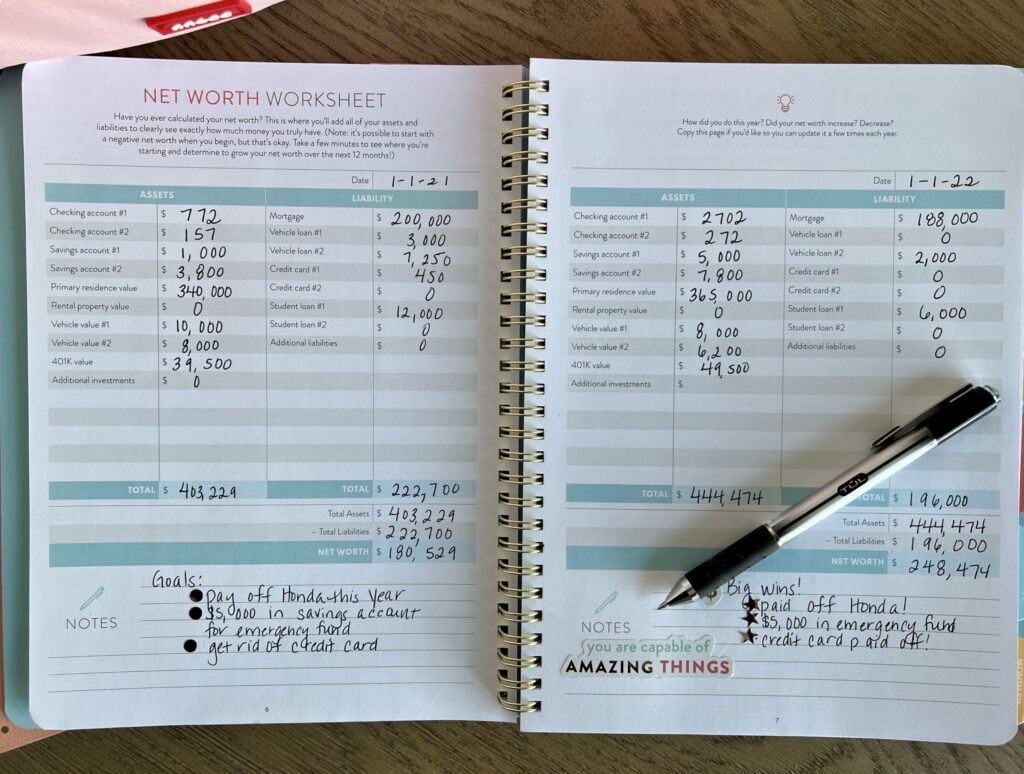 NET WORTH WORKSHEET
Have you ever calculated your net worth? This is where you'll add all of your assets and
liabilities to clearly see exactly how much money you truly have. (Note: it's possible to start with
a negative net worth when you begin, but that's okay. Take a few minutes to see where you're
starting and determine to grow your net worth over the next 12 months!)
Date 1-1-21
ASSETS LIABILITY
Checking account #1 $ 772 Mortgage $ 200,000
Checking account #2 $ 157 Vehicle loan #1 $ 3,000
Savings account #1 $ 1,000 Vehicle loan #2 $ 7,250
Savings account #2 $ 3,800 Credit card #1 $ 450
Primary residence value $ 340,000 Credit card #2 $ 0
Rental property value $ 0 Student loan #1 $ 12,000
Vehicle value #1 $ 10,000 Student loan #2 $ 0
Vehicle value #2 $ 8,000 Additional liabilities $ 0
401K value $ 39,500
Additional investments $ 0
TOTAL $ 403,229 TOTAL $ 222,700
Total Assets $ 403,229
– Total Liabilities $ 222,700
NET WORTH $ 180,529
NOTES
Goals:
pay off Honda this year
$5,000 in savings account
for emergency fund
get rid of credit card
6
How did you do this year? Did your net worth increase? Decrease?
Copy this page if you'd like so you can update it a few times each year.
Date 1-1-22
ASSETS LIABILITY
Checking account #1 $ 2702 Mortgage $ 188,000
Checking account #2 $ 272 Vehicle loan #1 $ 0
Savings account #1 $ 5,000 Vehicle loan #2 $ 2,000
Savings account #2 $ 7,800 Credit card #1 $ 0
Primary residence value $ 365,000 Credit card #2 $ 0
Rental property value $ 0 Student loan #1 $ 6,000
Vehicle value #1 $ 8,000 Student loan #2 $ 0
Vehicle value #2 $ 6,200 Additional liabilities $ 0
401K value $ 49,500
Additional investments $
TOTAL $ 444,474 TOTAL $ 196,000
Total Assets $ 444,474
– Total Liabilities $ 196,000
NET WORTH $ 248,474
TUL
NOTES
Big wins!
paid off Honda!
$5,000 in emergency fund
credit card paid off!
you are capable of
AMAZING THINGS
7